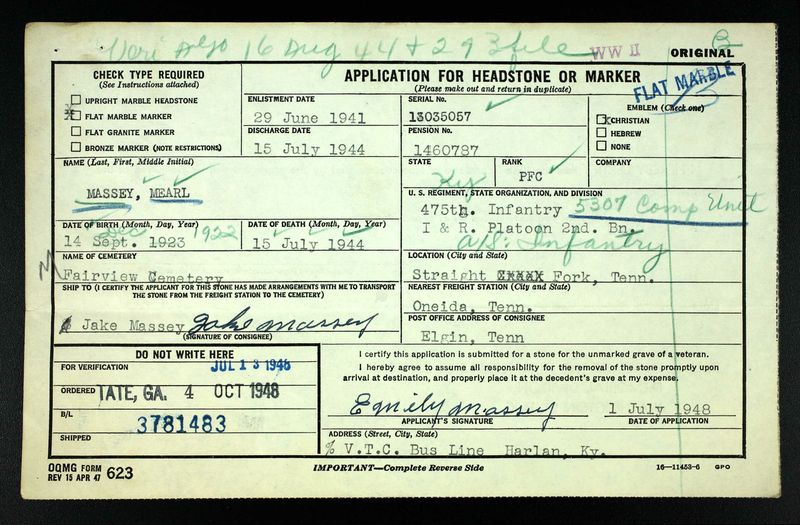 Veri A & O 16 Aug 44 + 293 file
WW II
ORIGINAL
B
CHECK TYPE REQUIRED
(See Instructions attached)
UPRIGHT MARBLE HEADSTONE
X FLAT MARBLE MARKER
FLAT GRANITE MARKER
BRONZE MARKER (NOTE RESTRICTIONS)
APPLICATION FOR HEADSTONE OR MARKER
(Please make out and return in duplicate)
FLAT MARBLE
ENLISTMENT DATE
29 June 1941
DISCHARGE DATE
15 July 1944
SERIAL No.
13035057
PENSION No.
1460787
EMBLEM (Check one)
X CHRISTIAN
HEBREW
NONE
NAME (Last, First, Middle Initial)
MASSEY, MEARL
STATE
Ky
RANK
PFC
COMPANY
U. S. REGIMENT, STATE ORGANIZATION, AND DIVISION
475th. Infantry 5307 Comp Unit
I & R. Platoon 2nd. Bn.
A/S: Infantry
DATE OF BIRTH (Month, Day, Year)
Dec 1922
14 Sept. 1923
DATE OF DEATH (Month, Day, Year)
15 July 1944
NAME OF CEMETERY
M
Fairview Cemetery
LOCATION (City and State)
Straight Fork, Tenn.
SHIP TO (I CERTIFY THE APPLICANT FOR THIS STONE HAS MADE ARRANGEMENTS WITH ME TO TRANSPORT
THE STONE FROM THE FREIGHT STATION TO THE CEMETERY)
Jake Massey Jake Massey
(SIGNATURE OF CONSIGNEE)
NEAREST FREIGHT STATION (City and State)
Oneida, Tenn.
POST OFFICE ADDRESS OF CONSIGNEE
Elgin, Tenn
DO NOT WRITE HERE
FOR VERIFICATION
JUL 13 1948
ORDERED
TATE, GA. 4 OCT 1948
B/L
3781483
SHIPPED
I certify this application is submitted for a stone for the unmarked grave of a veteran.
I hereby agree to assume all responsibility for the removal of the stone promptly upon
arrival at destination, and properly place it at the decedent's grave at my expense.
Emily Massey
1 July 1948
APPLICANT'S SIGNATURE
DATE OF APPLICATION
ADDRESS (Street, City, State)
% V.T.C. Bus Line Harlan, Ky.
OQMG FORM
REV 15 APR 47 623
IMPORTANT—Complete Reverse Side
16—11453-6 GPO